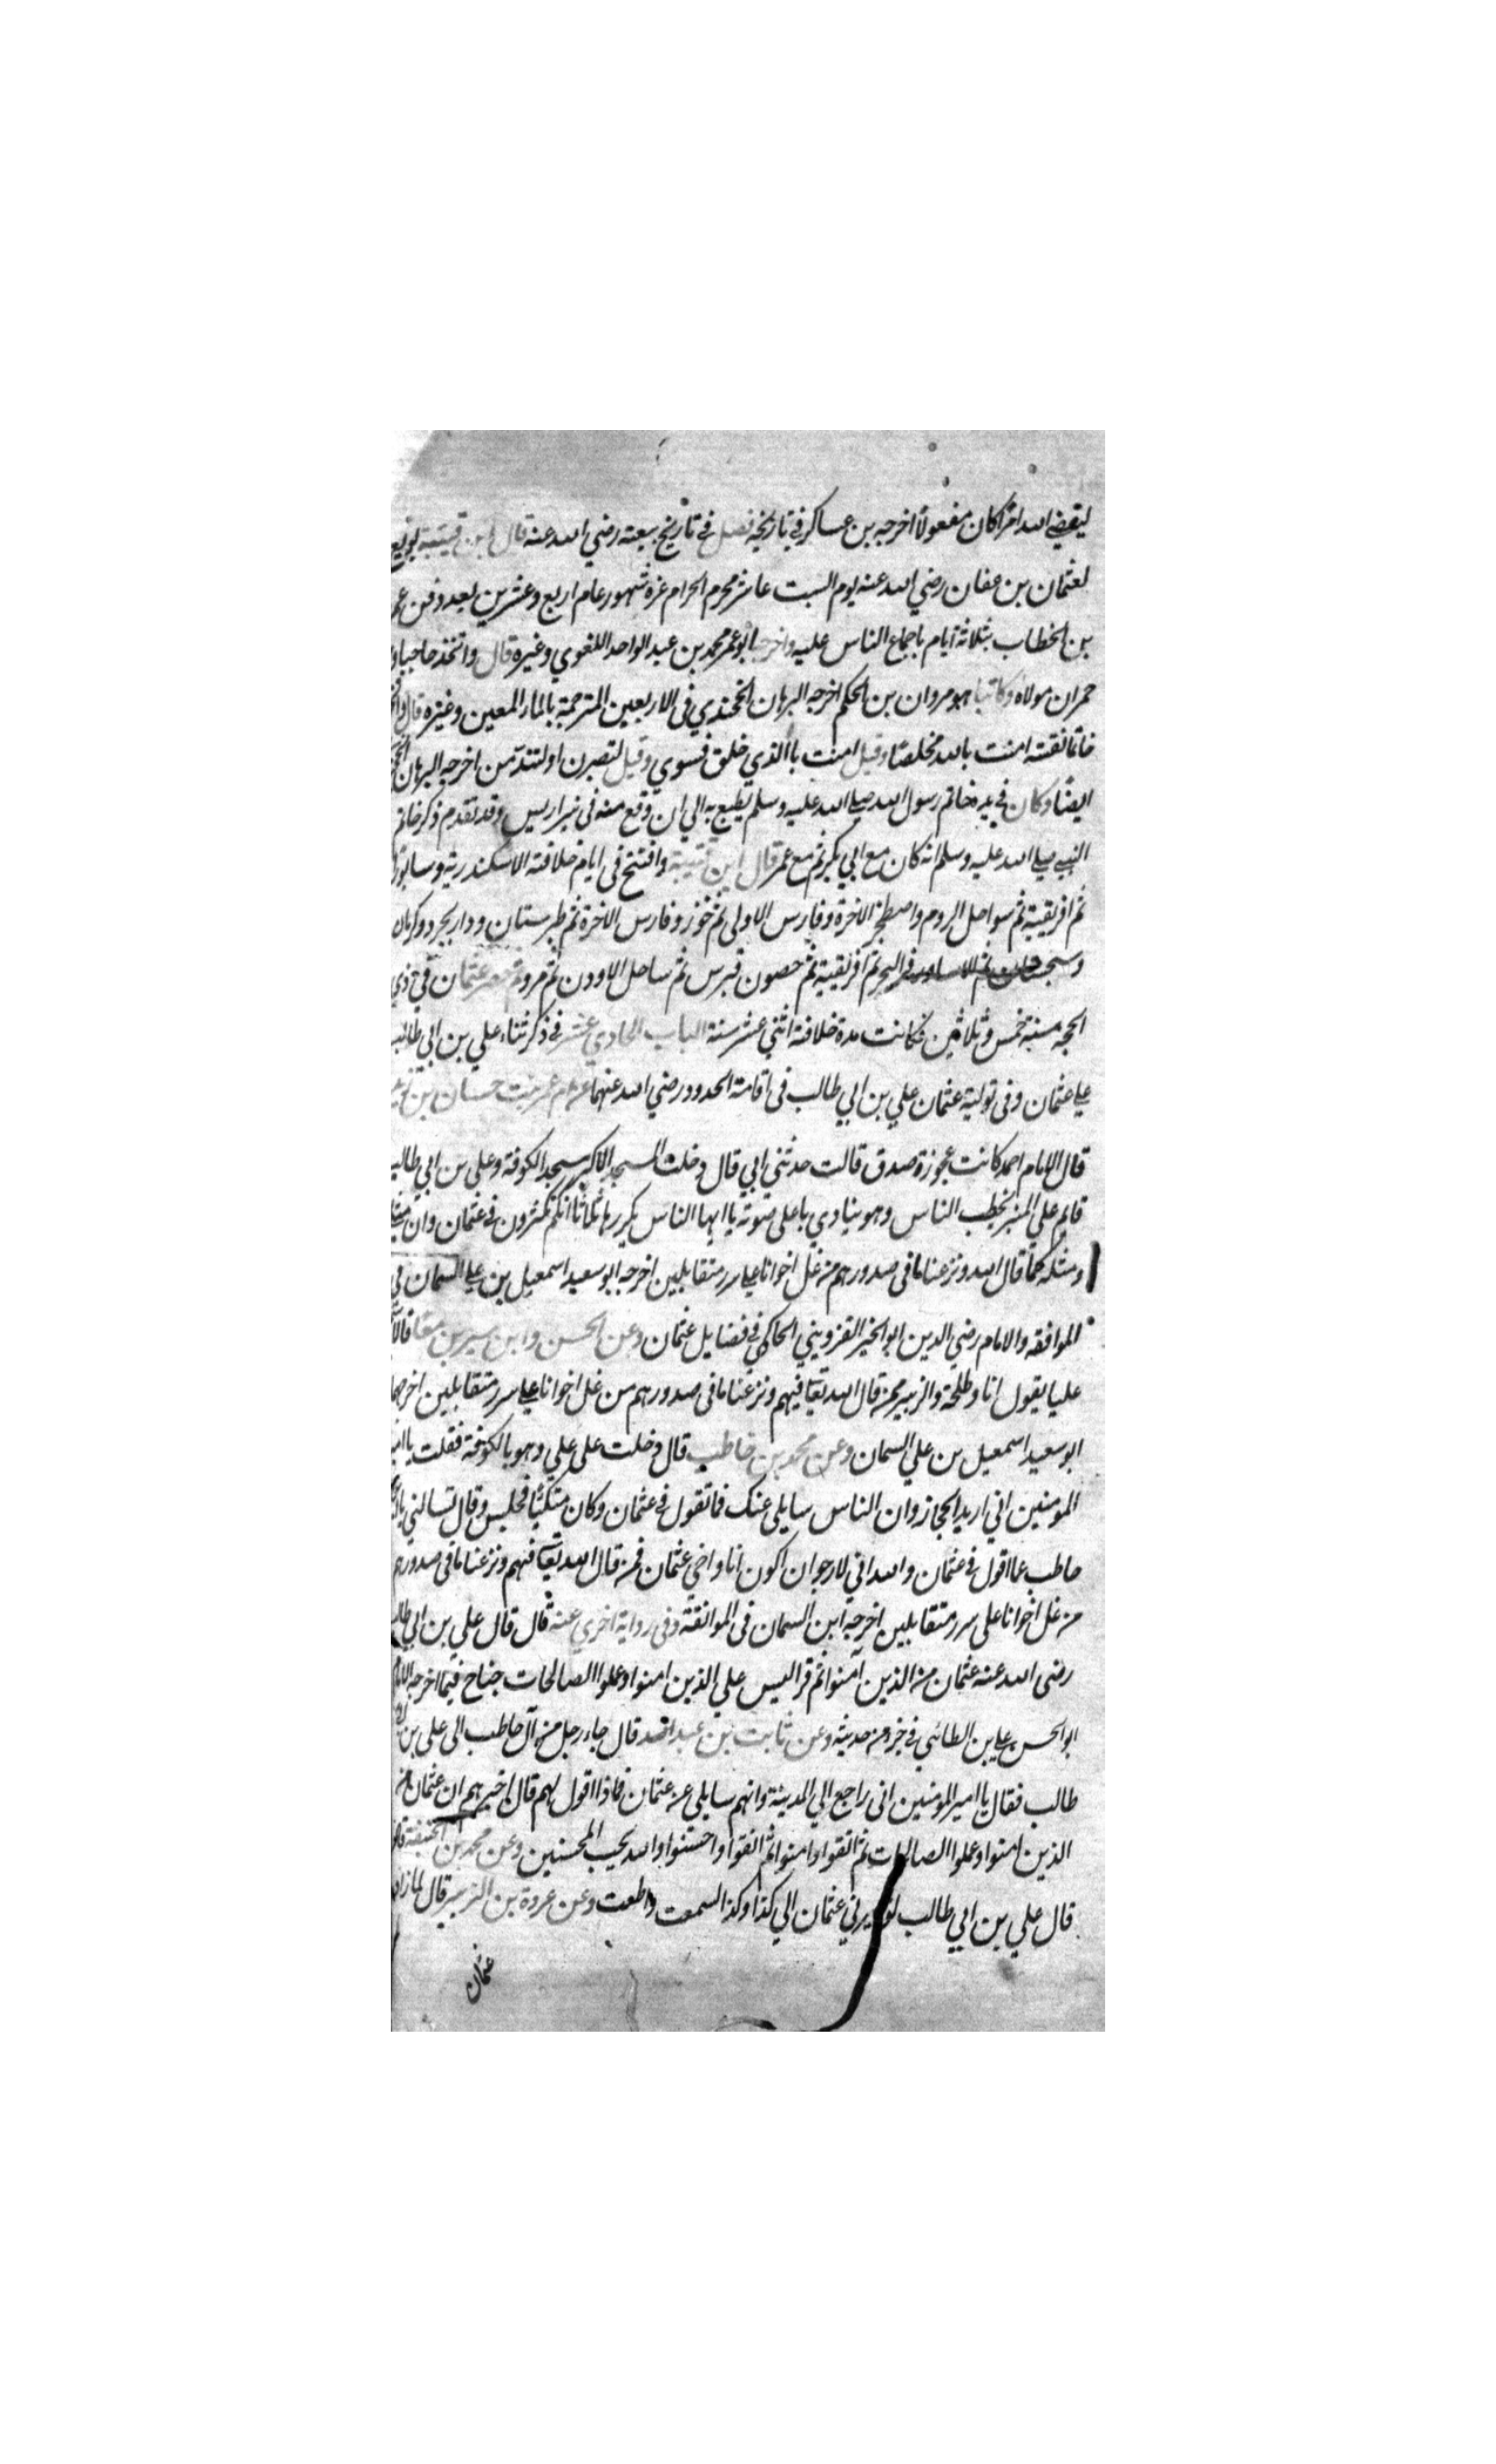 ليقضي الله امرًا كان مفعولًا اخرجه بن عساكر في تاريخه فصل في تاريخ بيعته رضي الله عنه قال ابن قتيبة بويع
لعثمان بن عفان رضي الله عنه يوم السبت عاشر محرم الحرام غرة شهور عام اربع وعشرين بعد دفن عمر
بن الخطاب بثلاثة ايام باجماع الناس عليه واخرجه ابو عمر محمد بن عبد الواحد اللغوي وغيره قال واتخذ حاجبا و
حمران مولاه وكاتبا هو مروان بن الحكم اخرجه البرهان الخجندي في الاربعين المترجمة بالماء المعين وغيره قال
خاتما نقشه امنت بالله مخلصًا وقيل امنت باالذي خلق فسوي وقيل لتصبرن او لتندمن اخرجه البرهان
ايضًا وكان في يده خاتم رسول الله صلي الله عليه وسلم يطبع به الي ان وقع منه في بير اريس وقد تقدم ذكر خاتم
النبي صلي الله عليه وسلم انه كان مع ابي بكر ثم مع عمر قال ابن قتيبة وافتتح في ايام خلافته الاسكندرية وسابور
ثم افريقية ثم سواحل الروم واصطخر الاخرة وفارس الاولى ثم خوز وفارس الاخرة ثم طبرستان ودار بجرد وكرمان
في البحر ثم افريقية ثم حصون قبرس ثم ساحل الاردن ثم مرو ثم حصر عثمان في ذي
الحجه سنة خمس وثلاثين فكانت مدة خلافته اثني عشر سنة الباب الحادي عشر في ذكر ثناء علي بن ابي طالب
علي عثمان وفي تولية عثمان علي بن ابي طالب في اقامة الحدود رضي الله عنهما بنت حسان بن
قال الامام احمد كانت عجوزة صدق قالت حدثني ابي قال دخلت المسجد الاكبر مسجد الكوفة وعلي بن ابي طالب
قائم علي المنبر يخطب الناس وهو ينادي باعلى صوته يا ايها الناس يكررها ثلاثا انكم تكثرون في عثمان وان
ومثله كما قال الله ونزعنا ما في صدورهم من غل اخوانا علي سرر متقابلين اخرجه ابو سعيد اسمعيل بن علي السمان في
الموافقه والامام رضي الدين ابو الخير القزويني الحاكمي في فضايل عثمان وعن الحسن وابن سيرين معا قالا
عليا يقول انا وطلحة والزبير ممن قال الله تعالي فيهم ونزعنا ما في صدورهم من غل اخوانا علي سرر متقابلين اخرجهما
ابو سعيد اسمعيل بن علي السمان وعن محمد بن خاطب قال دخلت على علي وهو بالكوفة فقلت يا امير
المومنين اني اريد الحجاز وان الناس سايلي عنك فما تقول في عثمان وكان متكئًا فجلس وقال تسالني
حاطب عما اقول في عثمان والله اني لارجو ان اكون انا واخي عثمان ممن قال الله تعالي فيهم ونزعنا ما في صدورهم
من غل اخوانا على سرر متقابلين اخرجه ابن السمان في الموافقة وفي رواية اخري عنه قال قال علي بن ابي طالب
رضي الله عنه عثمان من الذين آمنوا ثم قرا ليس علي الذين امنوا وعملوا الصالحات جناح فيما اخرجه الامام
ابو الحسن علي بن الطائي في جزء من حديثه وعن ثابت بن عبد الله قال جاء رجل من آل حاطب الى علي بن
طالب فقال يا امير المومنين اني راجع الي المدينة وانهم سايلي عن عثمان فماذا اقول لهم قال اخبرهم ان عثمان من
الذين امنوا وعملوا الصالحات ثم اتقوا وامنوا ثم اتقوا واحسنوا والله يحب المحسنين وعن محمد بن الحنفية
قال علي بن ابي طالب لو سيرني عثمان الي كذا وكذا لسمعت واطعت وعن عروة بن الزبير قال
عثمان